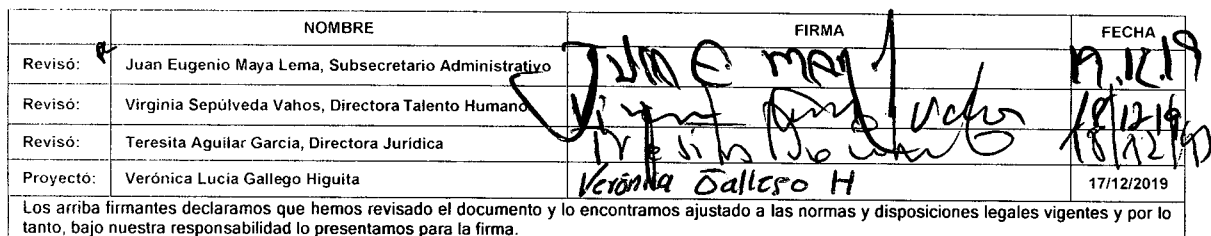 NOMBRE FIRMA FECHA
Revisó: Juan Eugenio Maya Lema, Subsecretario Administrativo 19.12.19
Revisó: Virginia Sepúlveda Vahos, Directora Talento Humano 18/12/19
Revisó: Teresita Aguilar García, Directora Jurídica 18/12/19
Proyectó: Verónica Lucia Gallego Higuita Verónica Gallego H 17/12/2019
Los arriba firmantes declaramos que hemos revisado el documento y lo encontramos ajustado a las normas y disposiciones legales vigentes y por lo
tanto, bajo nuestra responsabilidad lo presentamos para la firma.